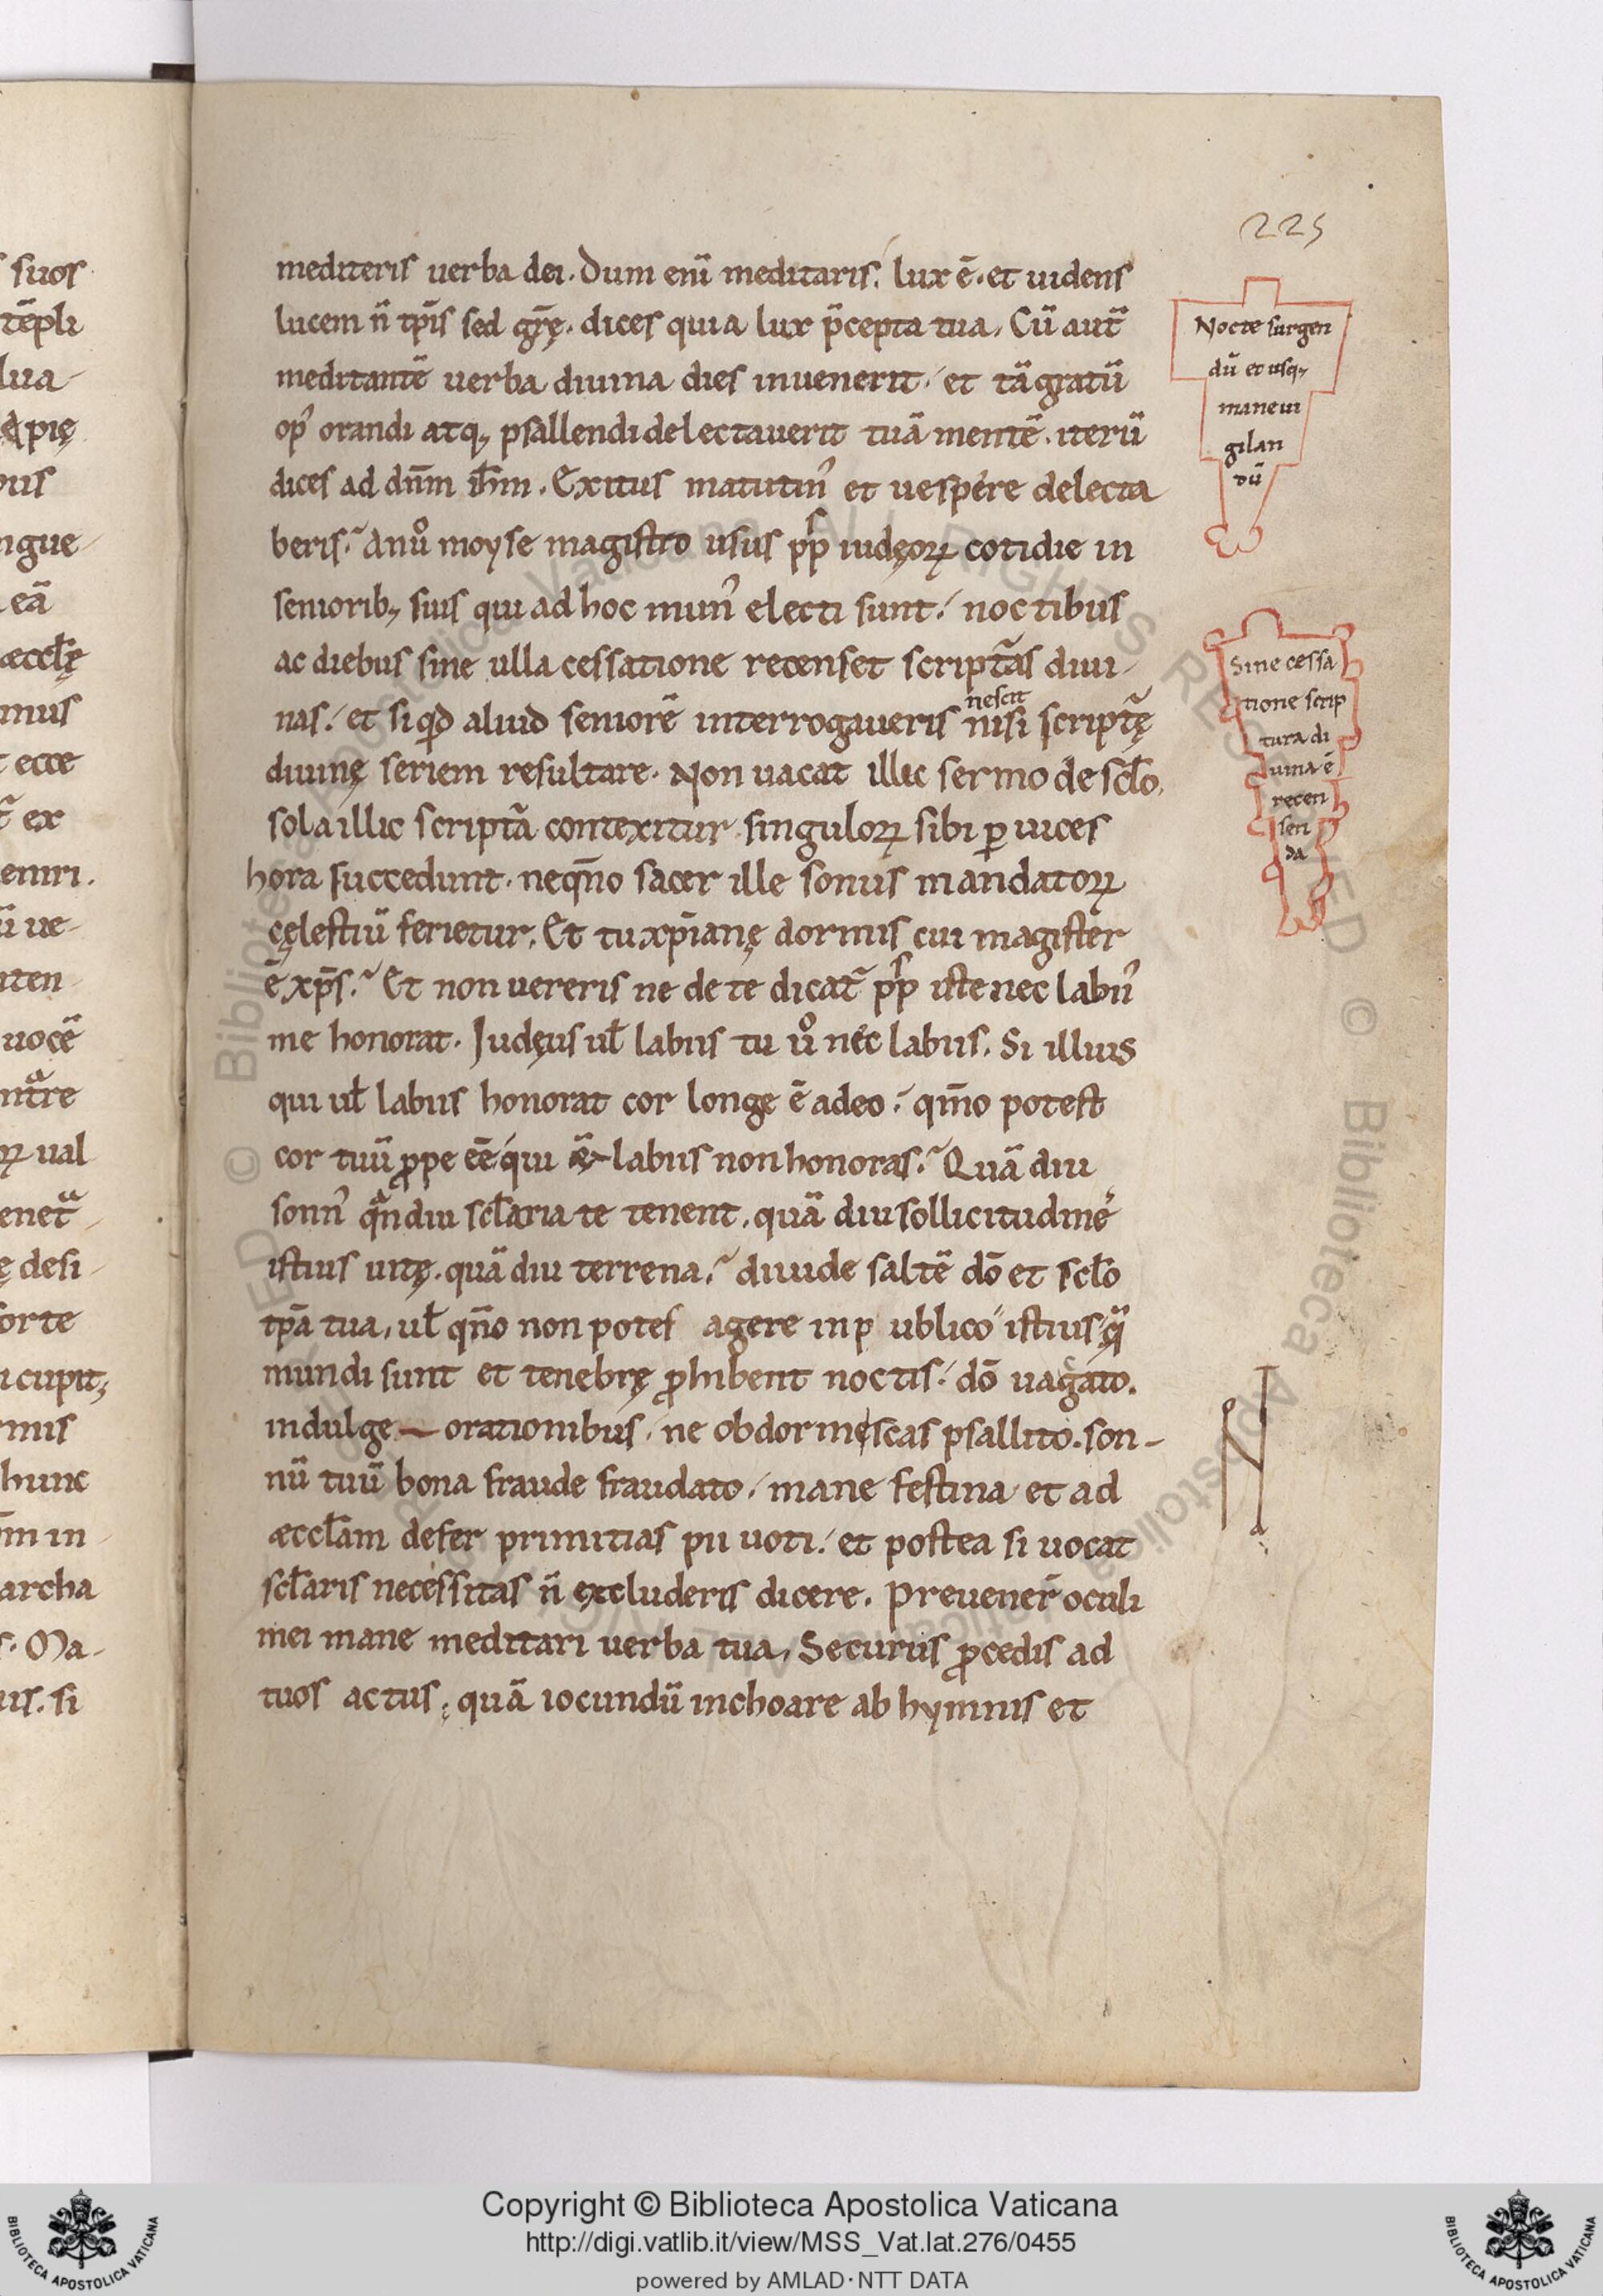 225
mediteris uerba dei. Dum eni̅ meditaris. lux e̅. et uidens
lucem n̅ tp̅is sed gr̅ę. dices quia lux p̅cepta tua. Cu̅ aut̅
meditante̅ uerba diuina dies inuenerit. et ta̅ gratu̅
op᾽ orandi atq; psallendi delectauerit tua̅ mente̅. iteru̅
dices ad dn̅m ih̅m. Exitus matutin᾽ et uespere delecta
beris. An uͦ moyse magistro usus pp̅s iudęoꝝ cotidie in
seniorib; suis qui ad hoc mun᾽ electi sunt. noctibus
ac diebus sine ulla cessatione recenset script̅as diui-
nas. et si qd̵ aliud seniore̅ interrogaueris nisi script̅ę
nescit
diuinę seriem resultare. Non uacat illic sermo de sclo̅.
sola illic script̅a contexitur. singuloꝝ sibi ꝑ uices
hora succedunt. neqn̅o sacer ille sonus mandatoꝝ
cęlestiu̅ ferietur. Et tu xp̅ianę dormis cui magister
e̅ xp̅s. Et non uereris ne de te dicat᷑ pp̅s iste nec labii᾽
me honorat. Iudęus ul̅ labiis tu uͦ nec labiis. Si illius
qui ul̅ labiis honorat cor longe e̅ a deo. qm̅o potest
cor tuu̅ ꝓpe ee̅ qui labiis non honoras. Qua̅ diu
sonn᾽ qn̅diu scl̅aria te tenent. qua̅ diu sollicitudine᾽
istius uitę. qua̅ diu terrena. diuide salte̅ do̅ et sclo̅
tp̅a tua. ul̅ qn̅o non potes agere in publico istius q̅
mundi sunt et tenebrę ꝓhibent noctis. do̅ uagato.
indulge orationibus. ne obdormiscas psallito. son-
nu̅ tuu̅ bona fraude fraudato. mane festina et ad
æccl̅am defer primitias pii uoti. et postea si uocat
scl̅aris necessitas n̅ excluderis dicere. Preuener̅ oculi
mei mane meditari uerba tua. Securus ꝓcedis ad
tuos actus; qua̅ iocundu̅ inchoare ab hymnis et
Nocte surgen
du̅ et usq;
mane ui
gilan
du̅
Sine cessa
tione scrip
tura di
uina e̅
recen
sen
da
suos
te̅pli
lua-
pię
ngue-
ea̅
æccl̅ę
mus
ecce
ex
emri.
ue-
nten-
uoce̅
ꝝ ual
ę desi-
orte
i cupit;
mis
hunc
m in
archa
Ma-
is. si
Copyright © Biblioteca Apostolica Vaticana
http://digi.vatlib.it/view/MSS_Vat.lat.276/0455
powered by AMLAD·NTT DATA
BIBLIOTECA APOSTOLICA VATICANA
BIBLIOTECA APOSTOLICA VATICANA